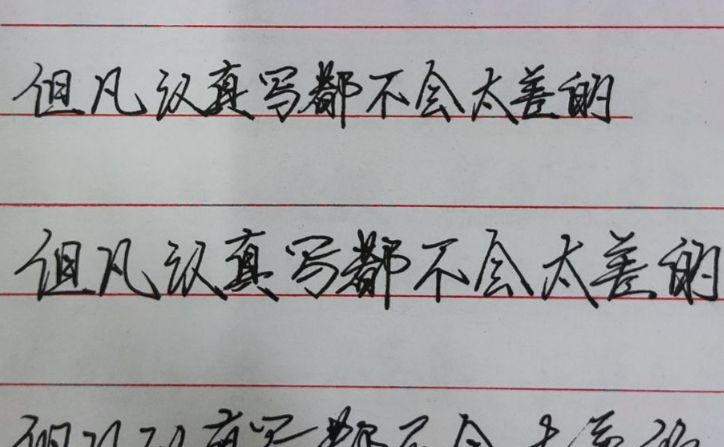 但凡认真写都不会太差的
但凡认真写都不会太差的